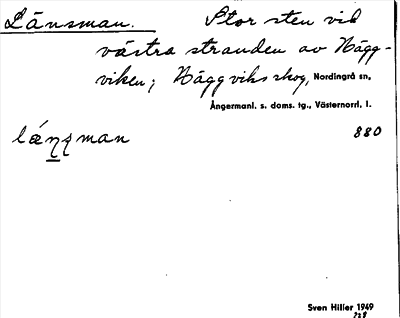 Länsman. Stor sten vid
västra stranden av Nägg-
viken; Näggviks skog, Nordingrå sn,
Ångermanl. s. doms. tg., Västernorrl. l.
880
Sven Hillér 1949
228